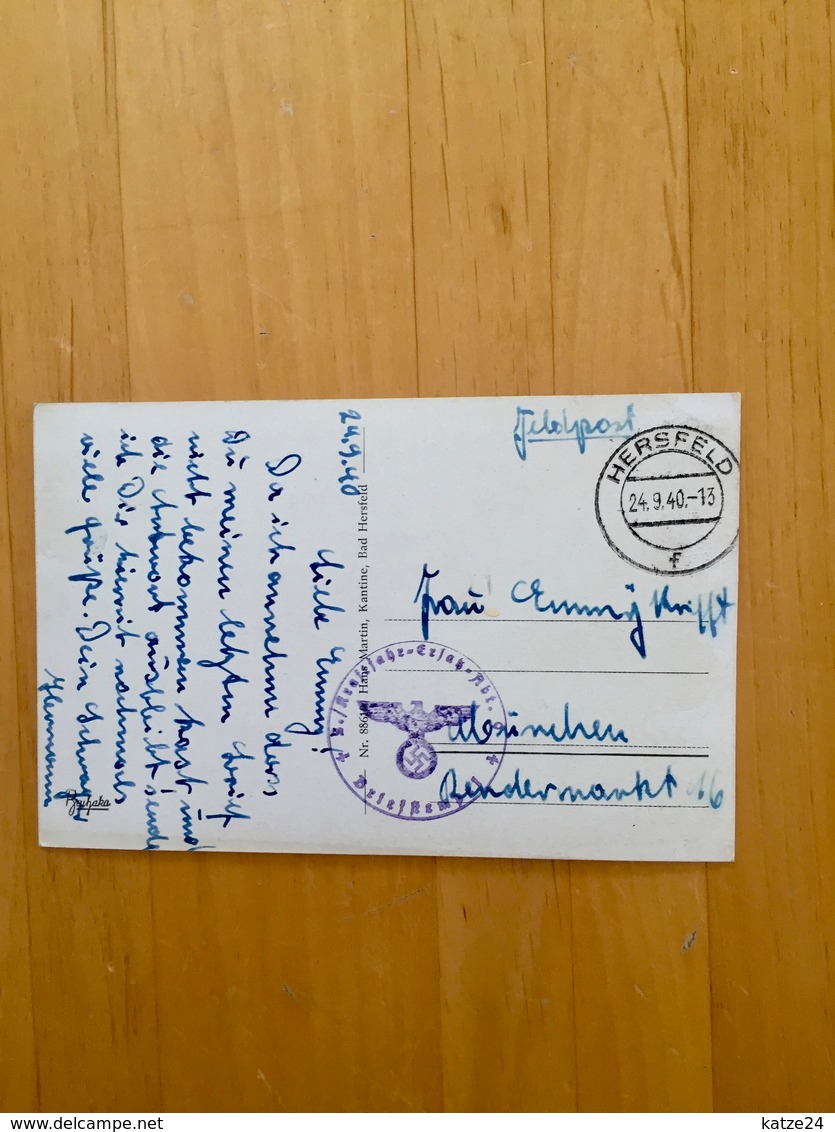 24.9.40
Liebe Emmy!
Da ich annehme dass
Du meinen letzten Brief
nicht bekommen hast und
die Antwort ausbleibt sende
ich Dir hiermit nochmals
viele Grüße. Dein Schwager
Hermann
Bruhaka
Hans Martin, Kantine, Bad Hersfeld
Feldpost
HERSFELD
24.9.40.-13
f
Frau Emmy
München
16
Kraftfahr-Ersatz-Abt.
Briefstempel
www.delcampe.net
katze24